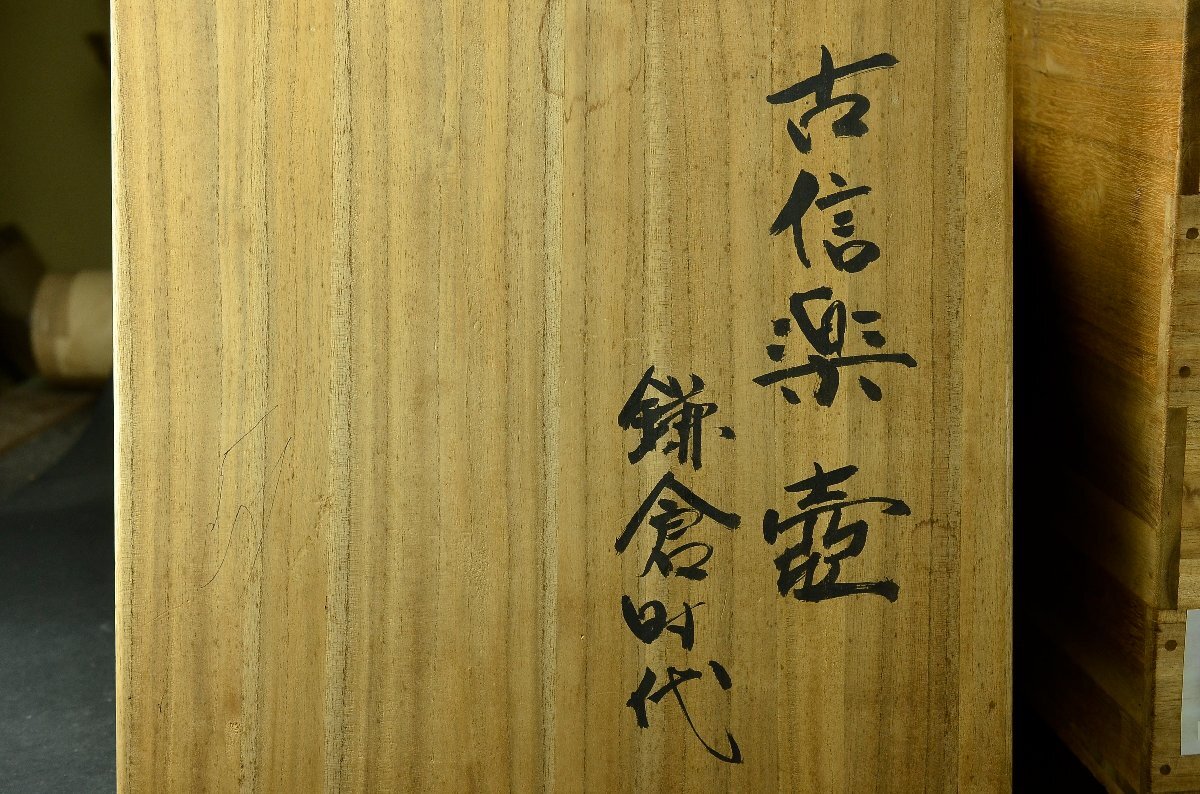 古信楽壺
鎌倉時代